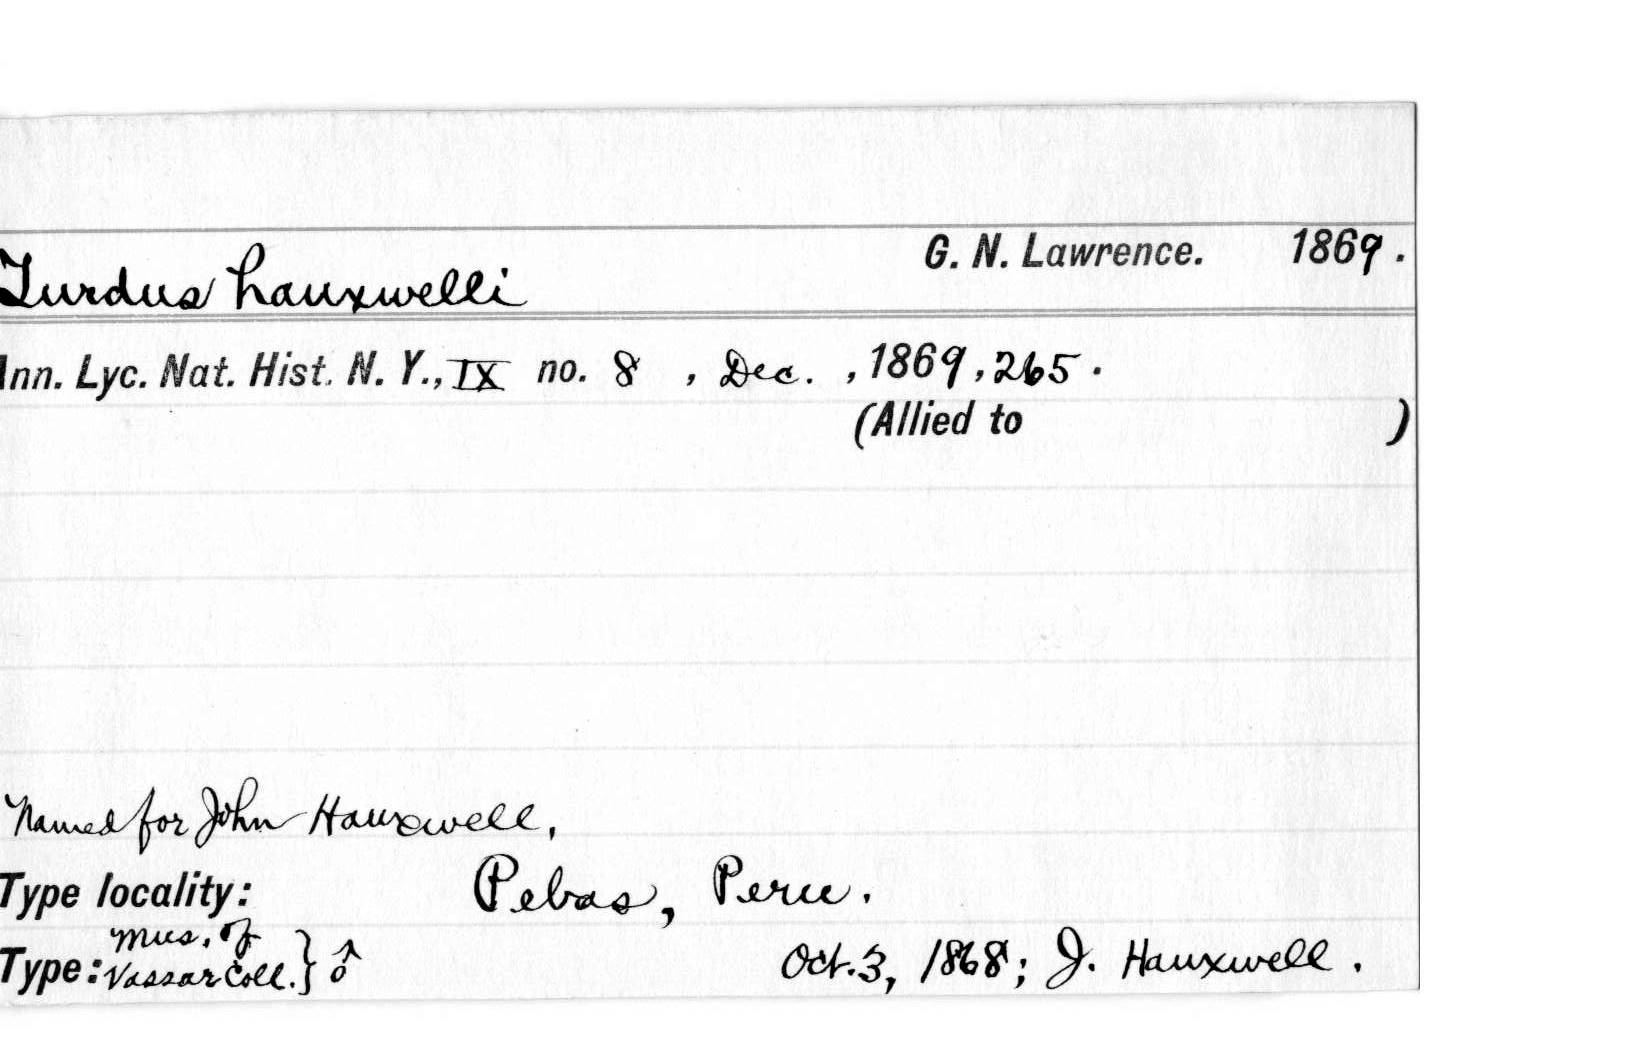 G. N. Lawrence. 1869.
Turdus hauxwelli
Ann. Lyc. Nat. Hist. N. Y., IX no. 8 , Dec. , 1869, 265.
(Allied to )
Named for John Hauxwell.
Type locality: Pebas, Peru.
Mus. of
Type: Vassar Coll. } ♂ Oct. 3, 1868; J. Hauxwell.